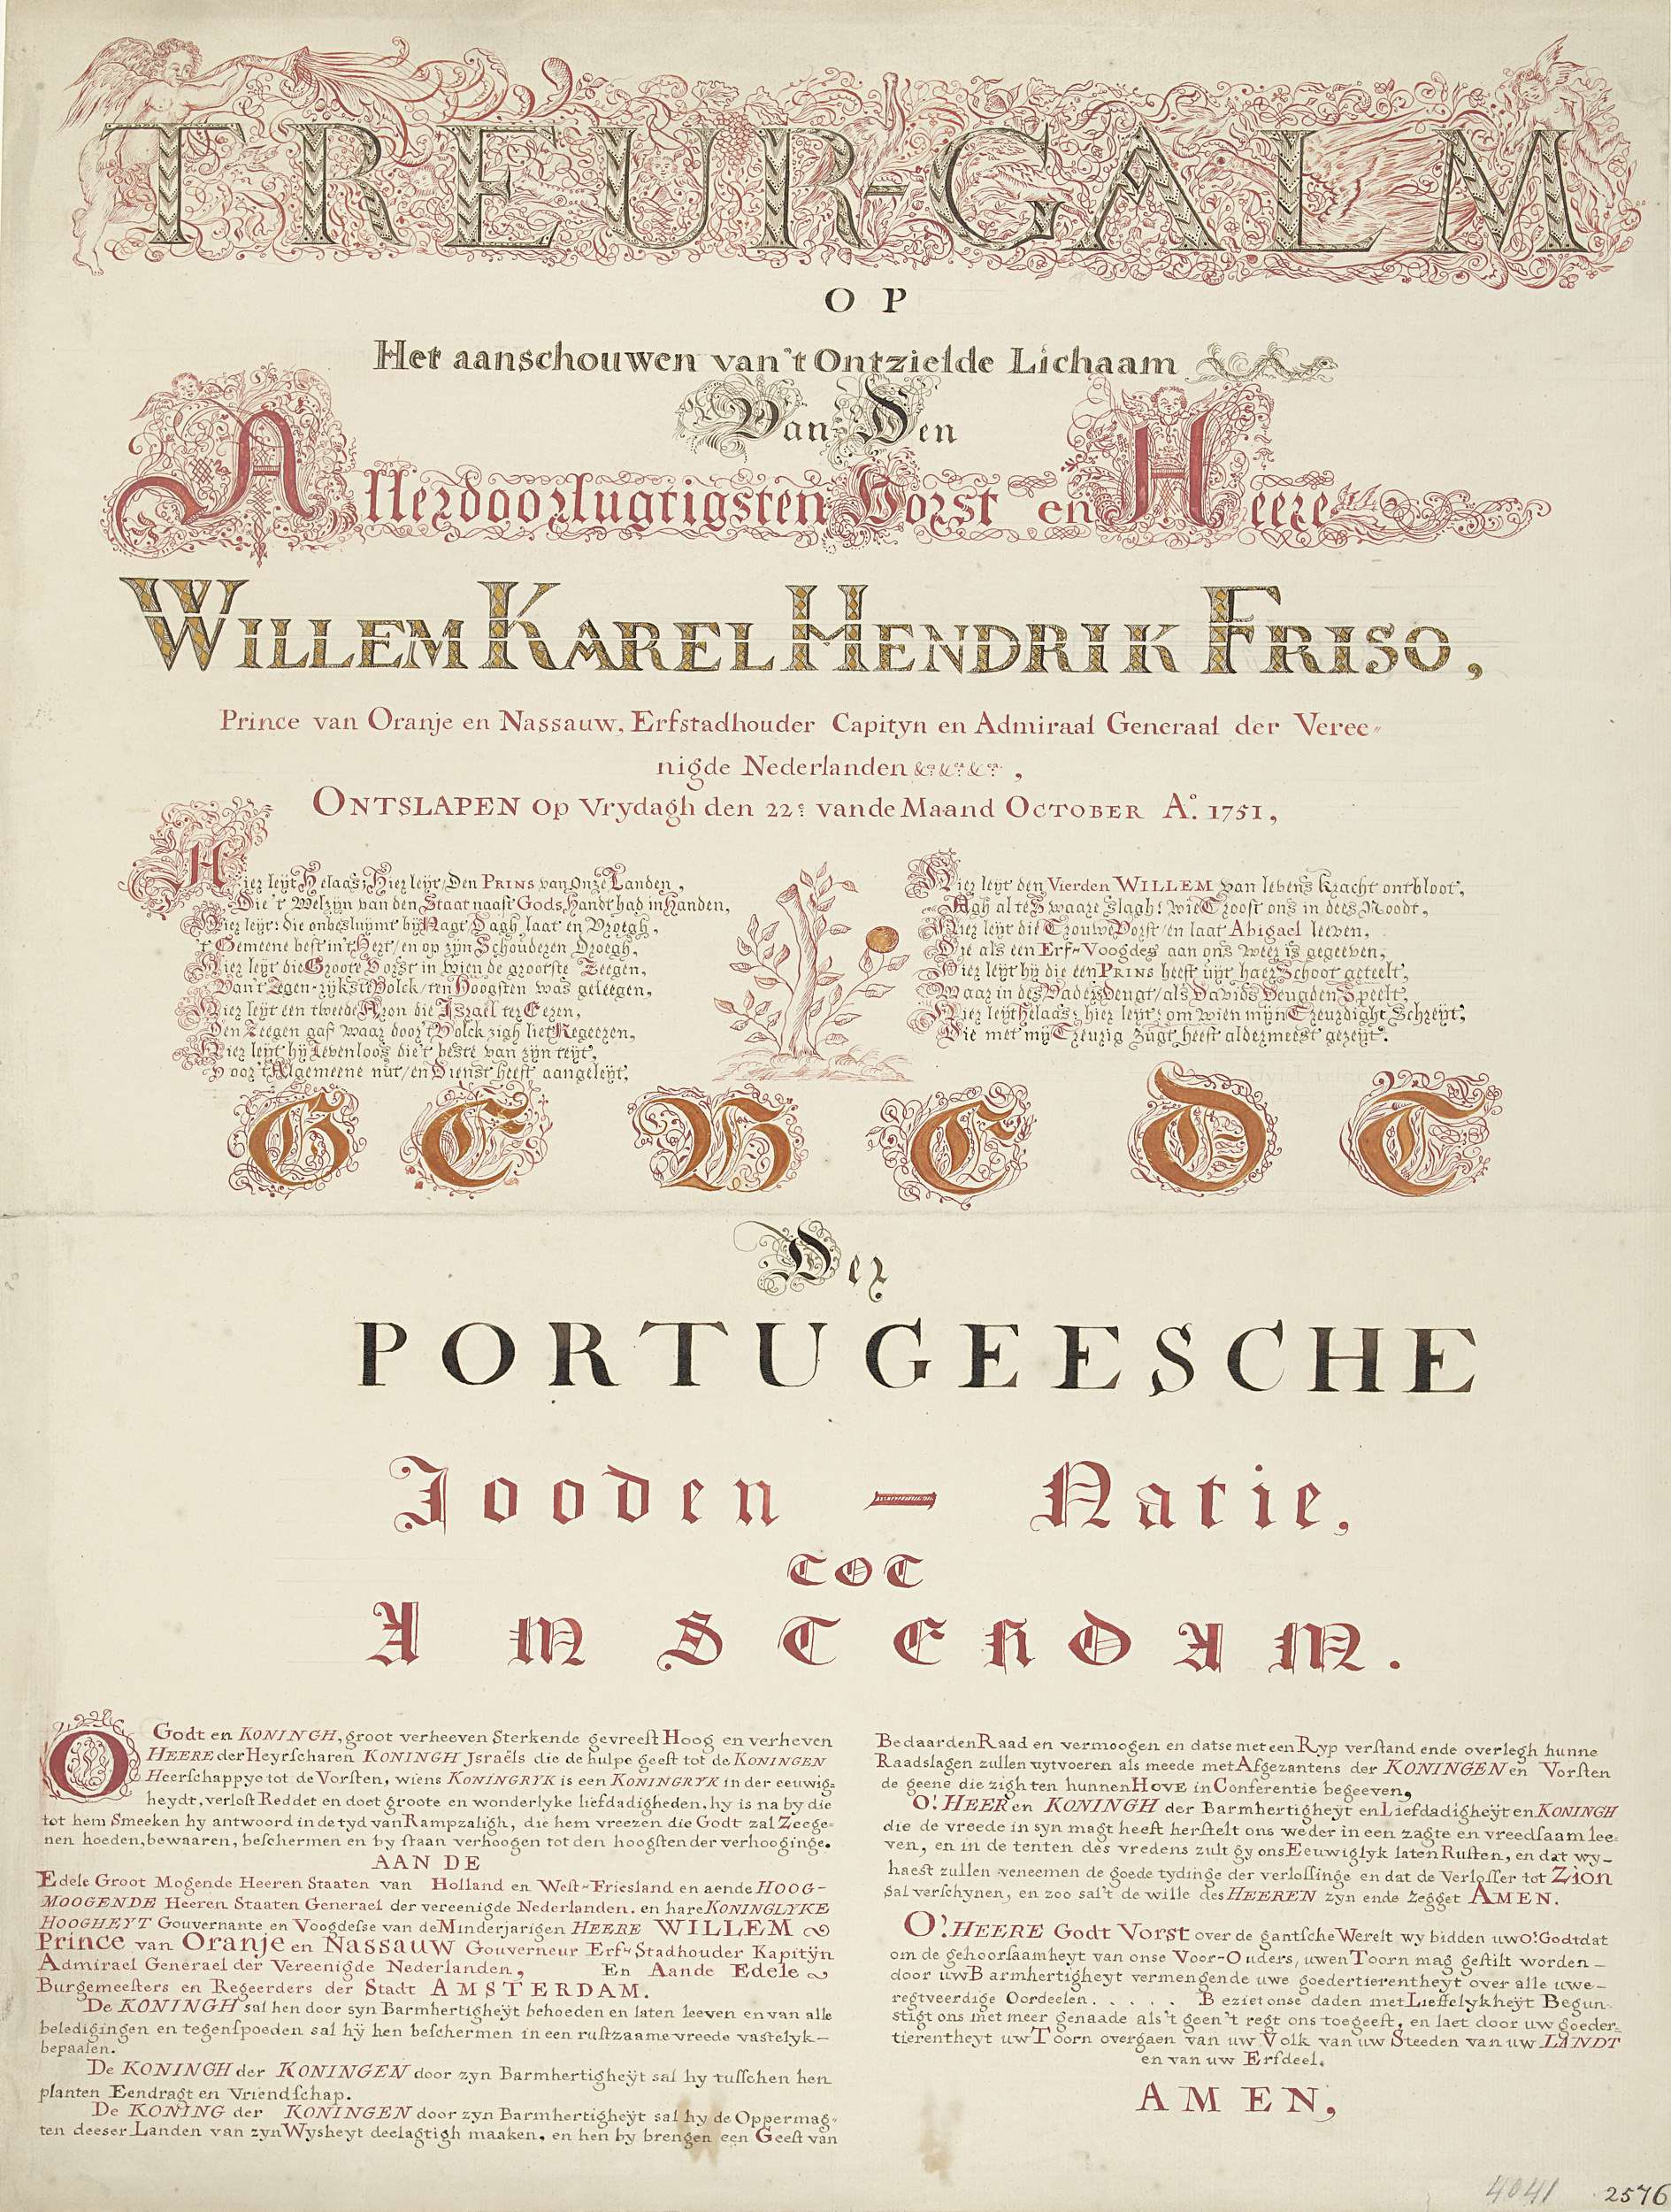 TREUR-GALM
OP
Het aanschouwen van 't Ontzielde Lichaam
Van Den
Allerdoorlugtigsten Vorst en Heere
WILLEM KAREL HENDRIK FRISO,
Prince van Oranje en Nassauw, Erfstadhouder Capityn en Admiraal Generaal der Veree„
nigde Nederlanden &ca &ca &ca,
ONTSLAPEN op Vrydagh den 22e vande Maand OCTOBER Ao. 1751,
Hier leÿt Helaas; Hier leÿt, Den PRINS van Onze Landen,
Die 't Welzÿn van den Staat naast Gods Handt had in Handen,
Hier leÿt: die onbesluÿmt bÿ Nagt/Dagh laat en Vroegh,
't Gemeene best in 't Hert/en op zÿn Schouderen Droegh,
Hier leÿt die Groote Vorst in wien de grootste Zeegen,
Van't Zegen-rÿkste Volck/ten Hoogsten was geleegen,
Hier leÿt een tweede Aron die Israël ter Eeren,
Den Zeegen gaf waar door 't Volck zigh liet Regeeren,
Hier leÿt hÿ Levenloos die 't beste van zÿn tÿt,
Voor 't Algemeene nut/en Dienst heeft aangeleÿt,
Hier leÿt den Vierden WILLEM van levens kracht ontbloot,
Agh al te Swaare slagh! wie Troost ons in dees Noodt,
Hier leÿt die Trouwe Vorst/en laat Abigael leeven,
Die als een Erf-Voogdes aan ons weer is gegeeven,
Hier leÿt hÿ die een PRINS heeft uÿt haer Schoot geteelt,
Waar in des Vaders Deugt/als Davids Deugden Speelt,
Hier leÿt Helaas; hier leÿt; om wien mÿn Treurdight Schreÿt,
Die met mÿ Treurig zugt heeft aldermeest gezeÿt.
GEBEDT
Der
PORTUGEESCHE
Jooden — Natie,
TOT
AMSTERDAM.
O Godt en KONINGH, groot verheeven Sterkende gevreest Hoog en verheven
HEERE der Heyrscharen KONINGH Jsraëls die de hulpe geeft tot de KONINGEN
Heerschappye tot de Vorsten, wiens KONINGRYK is een KONINGRYK in der eeuwig=
heydt, verlost Reddet en doet groote en wonderlyke liefdadigheden, hy is na by die
tot hem Smeeken hy antwoord in de tyd van Rampzaligh, die hem vreezen die Godt zal Zeege=
nen hoeden, bewaaren, beschermen en by staan verhoogen tot den hoogsten der verhooginge.
AAN DE
Edele Groot Mogende Heeren Staaten van Holland en West-Friesland en aende HOOG-
MOOGENDE Heeren Staaten Generael der vereenigde Nederlanden. en hare KONINGLYKE
HOOGHEYT Gouvernante en Voogdesse van de Minderjarigen HEERE WILLEM
Prince van Oranje en Nassauw Gouverneur Erf-Stadhouder Kapitÿn
Admirael Generael der Vereenigde Nederlanden, En Aande Edele
Burgemeesters en Regeerders der Stadt AMSTERDAM.
De KONINGH sal hen door syn Barmhertigheÿt behoeden en laten leeven en van alle
beledigingen en tegenspoeden sal hÿ hen beschermen in een rustzaame vreede vastelyk-
bepaalen.
De KONINGH der KONINGEN door zyn Barmhertigheÿt sal hy tusschen hen
planten Eendragt en Vriendschap.
De KONING der KONINGEN door zyn Barmhertigheÿt sal hy de Oppermag=
ten deeser Landen van zyn Wysheyt deelagtigh maaken, en hen by brengen een Geest van
Bedaarden Raad en vermoogen en datse met een Ryp verstand ende overlegh hunne
Raadslagen zullen uytvoeren als meede met Afgezantens der KONINGEN en Vorsten
de geene die zigh ten hunnen HOVE in Conferentie begeeven,
O! HEER en KONINGH der Barmhertigheÿt en Liefdadigheÿt en KONINGH
die de vreede in syn magt heeft herstelt ons weder in een zagte en vreedsaam lee=
ven, en in de tenten des vredens zult gy ons Eeuwiglyk laten Rusten, en dat wy-
haest zullen verneemen de goede tydinge der verlossinge en dat de Verlosser tot ZION
sal verschynen, en zoo sal't de wille des HEEREN zyn ende zegget AMEN.
O! HEERE Godt Vorst over de gantsche Werelt wy bidden uw O! Godt dat
om de gehoorsaamheyt van onse Voor-Ouders, uwen Toorn mag gestilt worden-
door uw Barmhertigheyt vermengende uwe goedertierentheyt over alle uwe-
regtveerdige Oordeelen. . . . . Beziet onse daden met Lieffelykheÿt Begun-
stigt ons met meer genaade als 't geen 't regt ons toegeeft, en laet door uw goeder=
tierentheyt uw Toorn overgaen van uw Volk van uw Steeden van uw LANDT
en van uw Erfdeel.
AMEN,
4041
2576